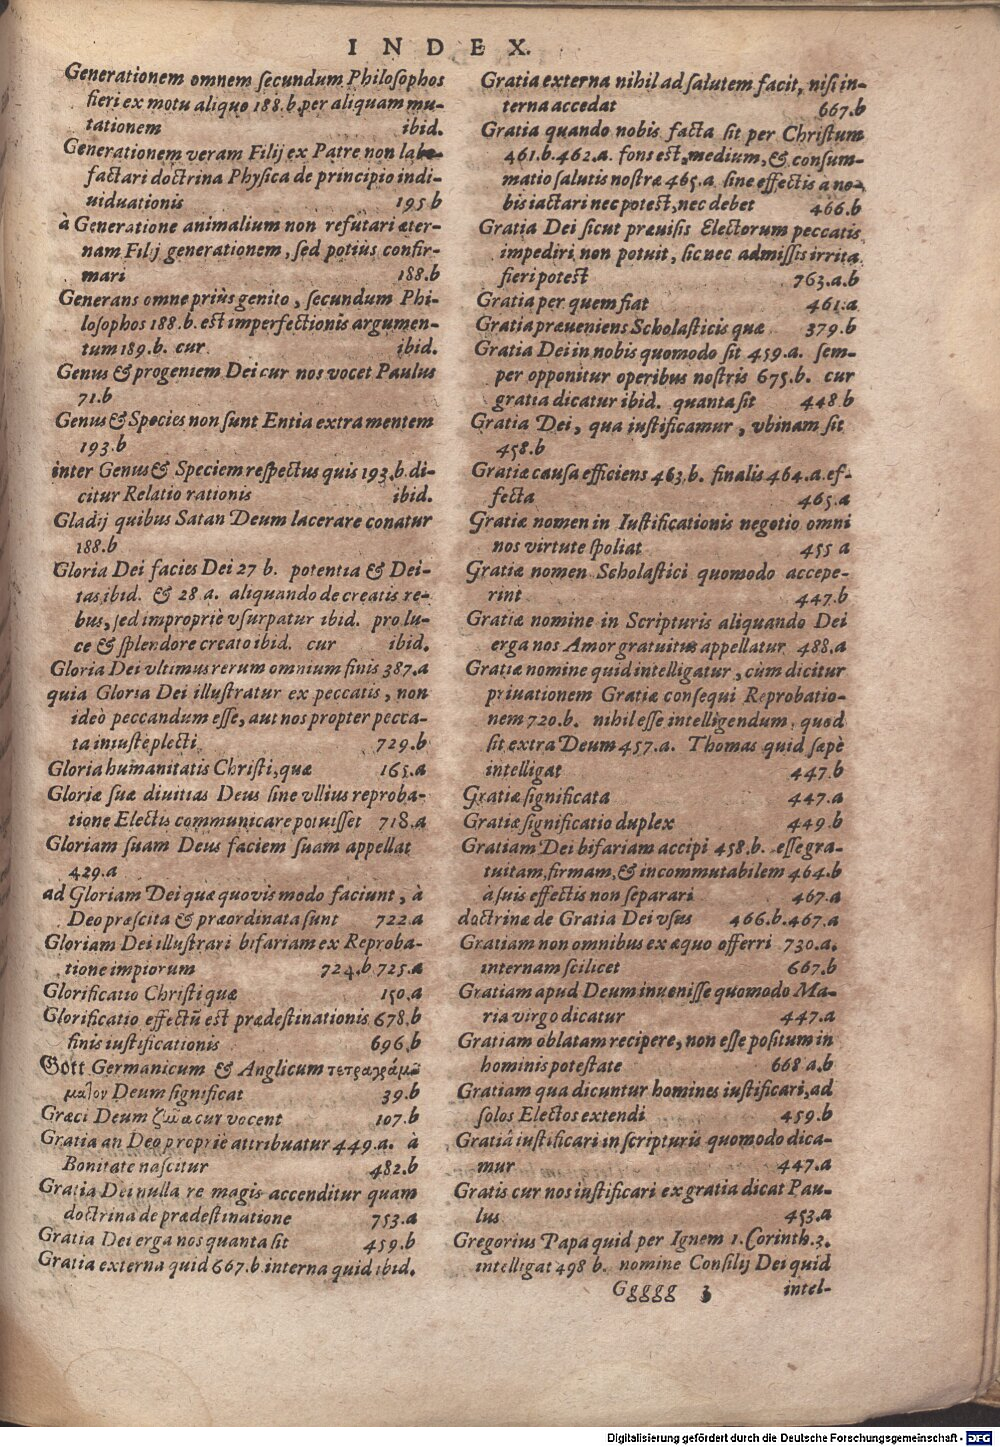 INDEX.
Generationem omnem secundum Philosophos
fieri ex motu aliquo 188.b. per aliquam mu-
tationem ibid.
Generationem veram Filij ex Patre non labe-
factari doctrina Physica de principio indi-
uiduationis 195 b
à Generatione animalium non refutari æter-
nam Filij generationem, sed potiùs confir-
mari 188.b
Generans omne priùs genito, secundum Phi-
losophos 188.b. est imperfectionis argumen-
tum 189.b. cur ibid.
Genus & progeniem Dei cur nos vocet Paulus
71.b
Genus & Species non sunt Entia extra mentem
193.b
inter Genus & Speciem respectus quis 193.b. di-
citur Relatio rationis ibid.
Gladij quibus Satan Deum lacerare conatur
188.b
Gloria Dei facies Dei 27 b. potentia & Dei-
tas ibid. & 28 a. aliquando de creatis re-
bus, sed impropriè vsurpatur ibid. pro lu-
ce & splendore creato ibid. cur ibid.
Gloria Dei vltimus rerum omnium finis 387.a
quia Gloria Dei illustratur ex peccatis, non
ideò peccandum esse, aut nos propter pecca-
ta iniustè plecti 729.b
Gloria humanitatis Christi, quæ 165.a
Gloriæ suæ diuitias Deus sine vllius reproba-
tione Electis communicare potuisset 718.a
Gloriam suam Deus faciem suam appellat
429.a
ad Gloriam Dei quæ quovis modo faciunt, à
Deo præscita & præordinata sunt 722.a
Gloriam Dei illustrari bifariam ex Reproba-
tione impiorum 724.b 725.a
Glorificatio Christi quæ 150.a
Glorificatio effectũ est prædestinationis 678.b
finis iustificationis 696.b
Gott Germanicum & Anglicum τετραγράμ-
ματον Deum significat 39.b
Græci Deum ζῶα cur vocent 107.b
Gratia an Deo propriè attribuatur 449.a. à
Bonitate nascitur 482.b
Gratia Dei nulla re magis accenditur quam
doctrina de prædestinatione 753.a
Gratia Dei erga nos quanta sit 459.b
Gratia externa quid 667.b. interna quid ibid.
Gratia externa nihil ad salutem facit, nisi in-
terna accedat 667.b
Gratia quando nobis facta sit per Christum
461.b. 462.a. fons est, medium, & consum-
matio salutis nostræ 465.a sine effectis à no-
bis iactari nec potest, nec debet 466.b
Gratia Dei sicut præuisis Electorum peccatis
impediri non potuit, sic nec admissis irrita
fieri potest 763.a.b
Gratia per quem fiat 461.a
Gratia præueniens Scholasticis quæ 379.b
Gratia Dei in nobis quomodo sit 459.a. sem-
per opponitur operibus nostris 675.b. cur
gratia dicatur ibid. quanta sit 448.b
Gratia Dei, qua iustificamur, vbinam sit
458.b
Gratiæ causa efficiens 463.b. finalis 464.a. ef-
fecta 465.a
Gratiæ nomen in Iustificationis negotio omni
nos virtute spoliat 455 a
Gratiæ nomen Scholastici quomodo accepe-
rint 447.b
Gratiæ nomine in Scripturis aliquando Dei
erga nos Amor gratuitus appellatur 488.a
Gratiæ nomine quid intelligatur, cùm dicitur
priuationem Gratiæ consequi Reprobatio-
nem 720.b. nihil esse intelligendum, quod
sit extra Deum 457.a. Thomas quid sæpè
intelligat 447.b
Gratiæ significata 447.a
Gratiæ significatio duplex 449.b
Gratiam Dei bifariam accipi 458.b. esse gra-
tuitam, firmam, & incommutabilem 464.b
à suis effectis non separari 467.a
doctrinæ de Gratia Dei vsus 466.b. 467.a
Gratiam non omnibus ex æquo offerri 730.a.
internam scilicet 667.b
Gratiam apud Deum inuenisse quomodo Ma-
ria virgo dicatur 447.a
Gratiam oblatam recipere, non esse positum in
hominis potestate 668 a.b
Gratiam qua dicuntur homines iustificari, ad
solos Electos extendi 459.b
Gratiâ iustificari in scripturis quomodo dica-
mur 447.a
Gratis cur nos iustificari ex gratia dicat Pau-
lus 453.a
Gregorius Papa quid per Ignem 1. Corinth. 3.
intelligat 498 b. nomine Consilij Dei quid
Ggggg 3 intel-
Digitalisierung gefördert durch die Deutsche Forschungsgemeinschaft - DFG